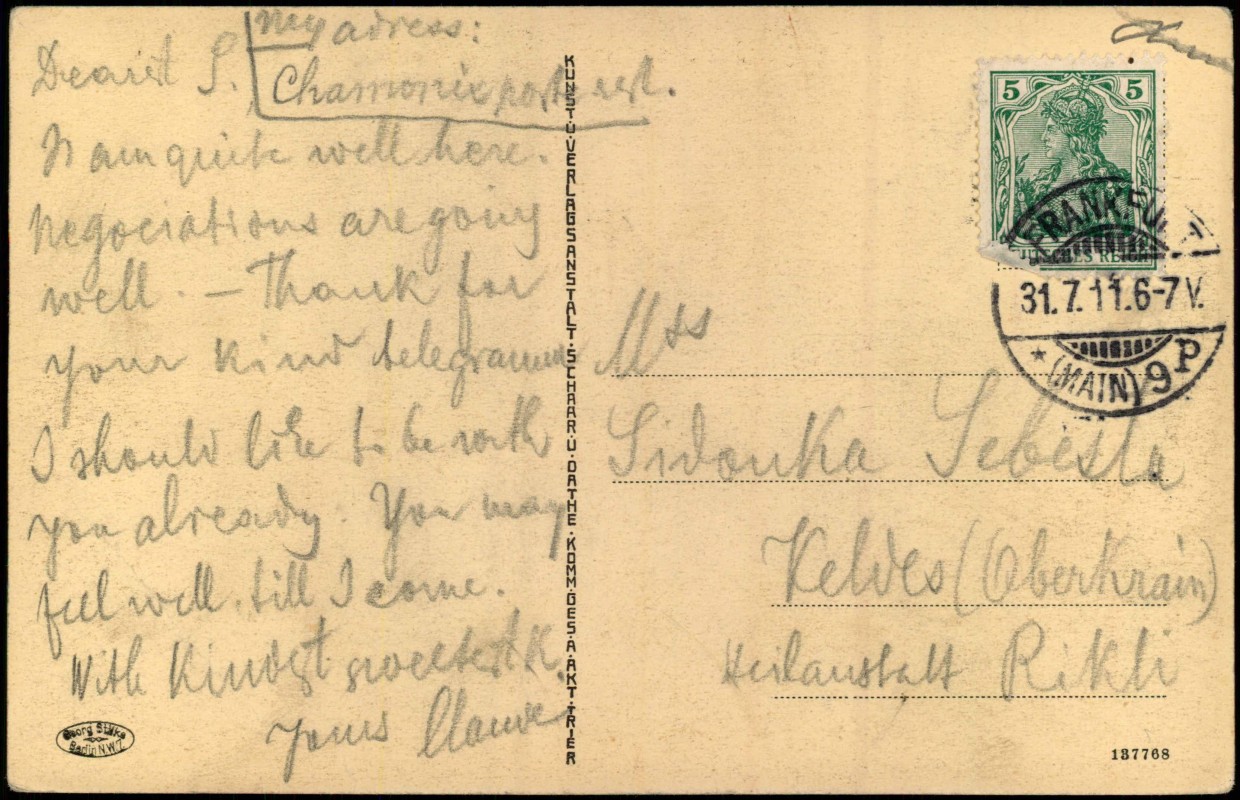 My adress:
Chamonix poste rest.
Dearest S.
I am quite well here.
Negociations are going
well. – Thank for
your kind telegramm
I should like to be with
you already. You may
feel well till I come.
With kindest sweetest K.
Yours
KUNST.U.VERLAGSANSTALT.SCHAAR.U.DATHE.KOMM.GES.A.AKT.TRIER
5 5
DEUTSCHES REICH
FRANKFURT
31.7.11.6-7V.
* (MAIN) 9P
Mss
Sidonka Sebesta
Veldes (Oberkrain)
Heilanstalt Rikli
Georg Stilke
Berlin N.W.7
137768